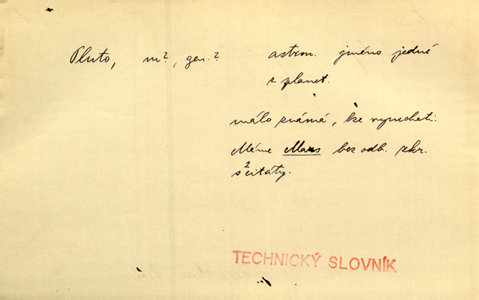 Pluto, m?, gen.? astron. jméno jedné
z planet.
málo známá, lze vynechati.
Máme Mars bez odb. zkr.
s 2 citáty.
TECHNICKÝ SLOVNÍK